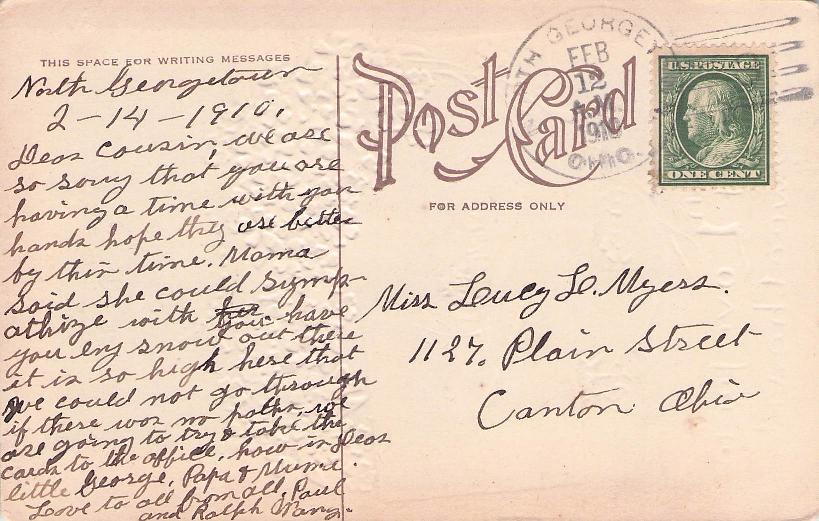 THIS SPACE FOR WRITING MESSAGES
North Georgetown
2-14-1910.
Dear Cousin, we are
so sorry that you are
having a time with your
hands hope they are better
by this time. Mama
said she could symp-
athize with you have
you eny snow out there
it is so high here that
we could not go through
if there was no paths, we
are going to try & take the
cards to the office, how is Dear
little George, Papa & Mume.
Love to all from all, Paul
and Ralph
Post Card
FOR ADDRESS ONLY
NORTH GEORGET
FEB
12
1910
OHIO.
U.S. POSTAGE
ONE CENT
Miss Lucy L. Myers.
1127. Plain Street
Canton Ohio